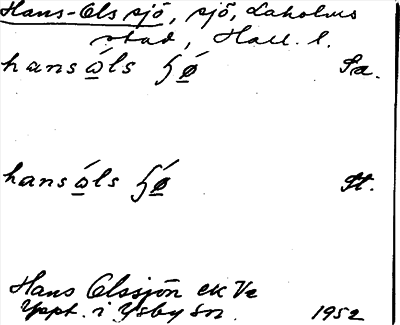 Hans-Ols sjö, sjö, Laholms
stad, Hall. l.
hansώ̲ls ɧǿ̲ Sa.
hansώ̲ls ɧǿ̲ St.
Hans Olssjön ek V2
Uppt. i Ysby sn. 1952